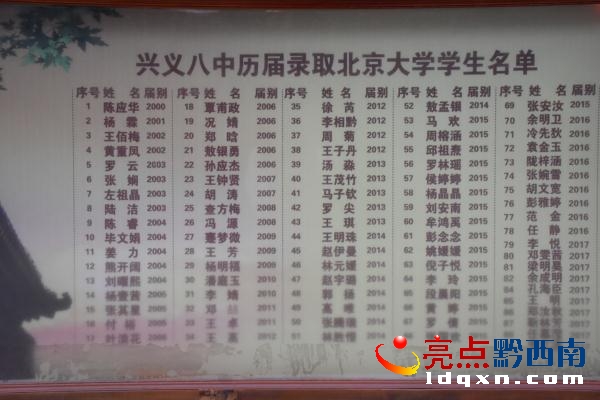 兴义八中历届录取北京大学学生名单
序号 姓名 届别 序号 姓名 届别 序号 姓名 届别 序号 姓名 届别 序号 姓名 届别
1 陈应华 2000 18 覃甫政 2006 35 徐芮 2012 52 敖孟银 2014 69 张安汝 2015
2 杨霖 2001 19 况婧 2006 36 李相黔 2012 53 马欢 2015 70 余明卫 2016
3 王佰梅 2002 20 郑晗 2006 37 周菊 2012 54 周榕涵 2015 71 冷先狄 2016
4 黄重凤 2002 21 敖银勇 2006 38 王子丹 2012 55 邱祖焘 2015 72 袁金玉 2016
5 罗云 2003 22 孙应杰 2006 39 汤淼 2013 56 罗林瑶 2015 73 陇梓涵 2016
6 张娴 2003 23 王钟贤 2007 40 王茂竹 2013 57 侯婷婷 2015 74 张婉雪 2016
7 左祖晶 2003 24 胡涛 2007 41 马子钦 2013 58 杨晶晶 2015 75 胡文宽 2016
8 陆洁 2003 25 查方梅 2008 42 罗尖 2013 59 刘安南 2015 76 彭雅婷 2016
9 陈睿 2004 26 冯源 2008 43 王琪 2013 60 牟鸿禹 2015 77 范金 2016
10 毕文娟 2004 27 蹇梦微 2009 44 王明珠 2013 61 彭念念 2015 78 任静 2016
11 姜力 2004 28 王芳 2009 45 赵伊曼 2013 62 姚媛媛 2015 79 李悦 2017
12 熊开阔 2004 29 杨明福 2009 46 林元媛 2013 63 倪子悦 2015 80 郑雯茜 2017
13 刘曜熙 2004 30 潘庭玉 2010 47 赵宇璐 2013 64 李玲 2015 81 梁明昊 2017
14 杨壹茜 2005 31 李婧 2010 48 郭扬 2014 65 段晨阳 2015 余成明 2017
15 张其星 2005 32 邓 2011 49 高 2014 66 黄婷 2015 孔海臣 2017
16 付裕 2005 33 王卓 2011 50 2014 67 罗 2015 王明 2017
17 叶 花 2005 34 王 2012 51 2014 2017
亮点黔西南
ldqxn.com